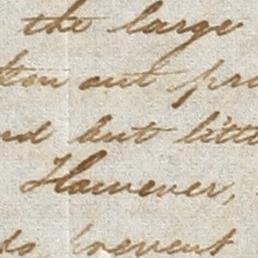 the large
ken out pro
nd but littl
However,
to prevent